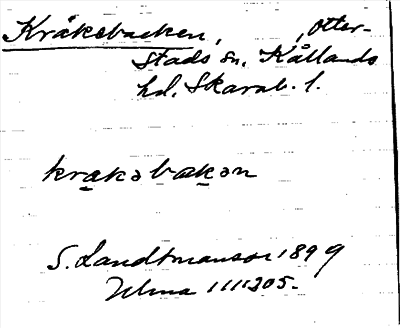 Kråkebacken, , Otter-
stads sn, Kållands
hd, Skarab. l.
krakəbakən
S. Landtmanson 1899
Ulma 111205.